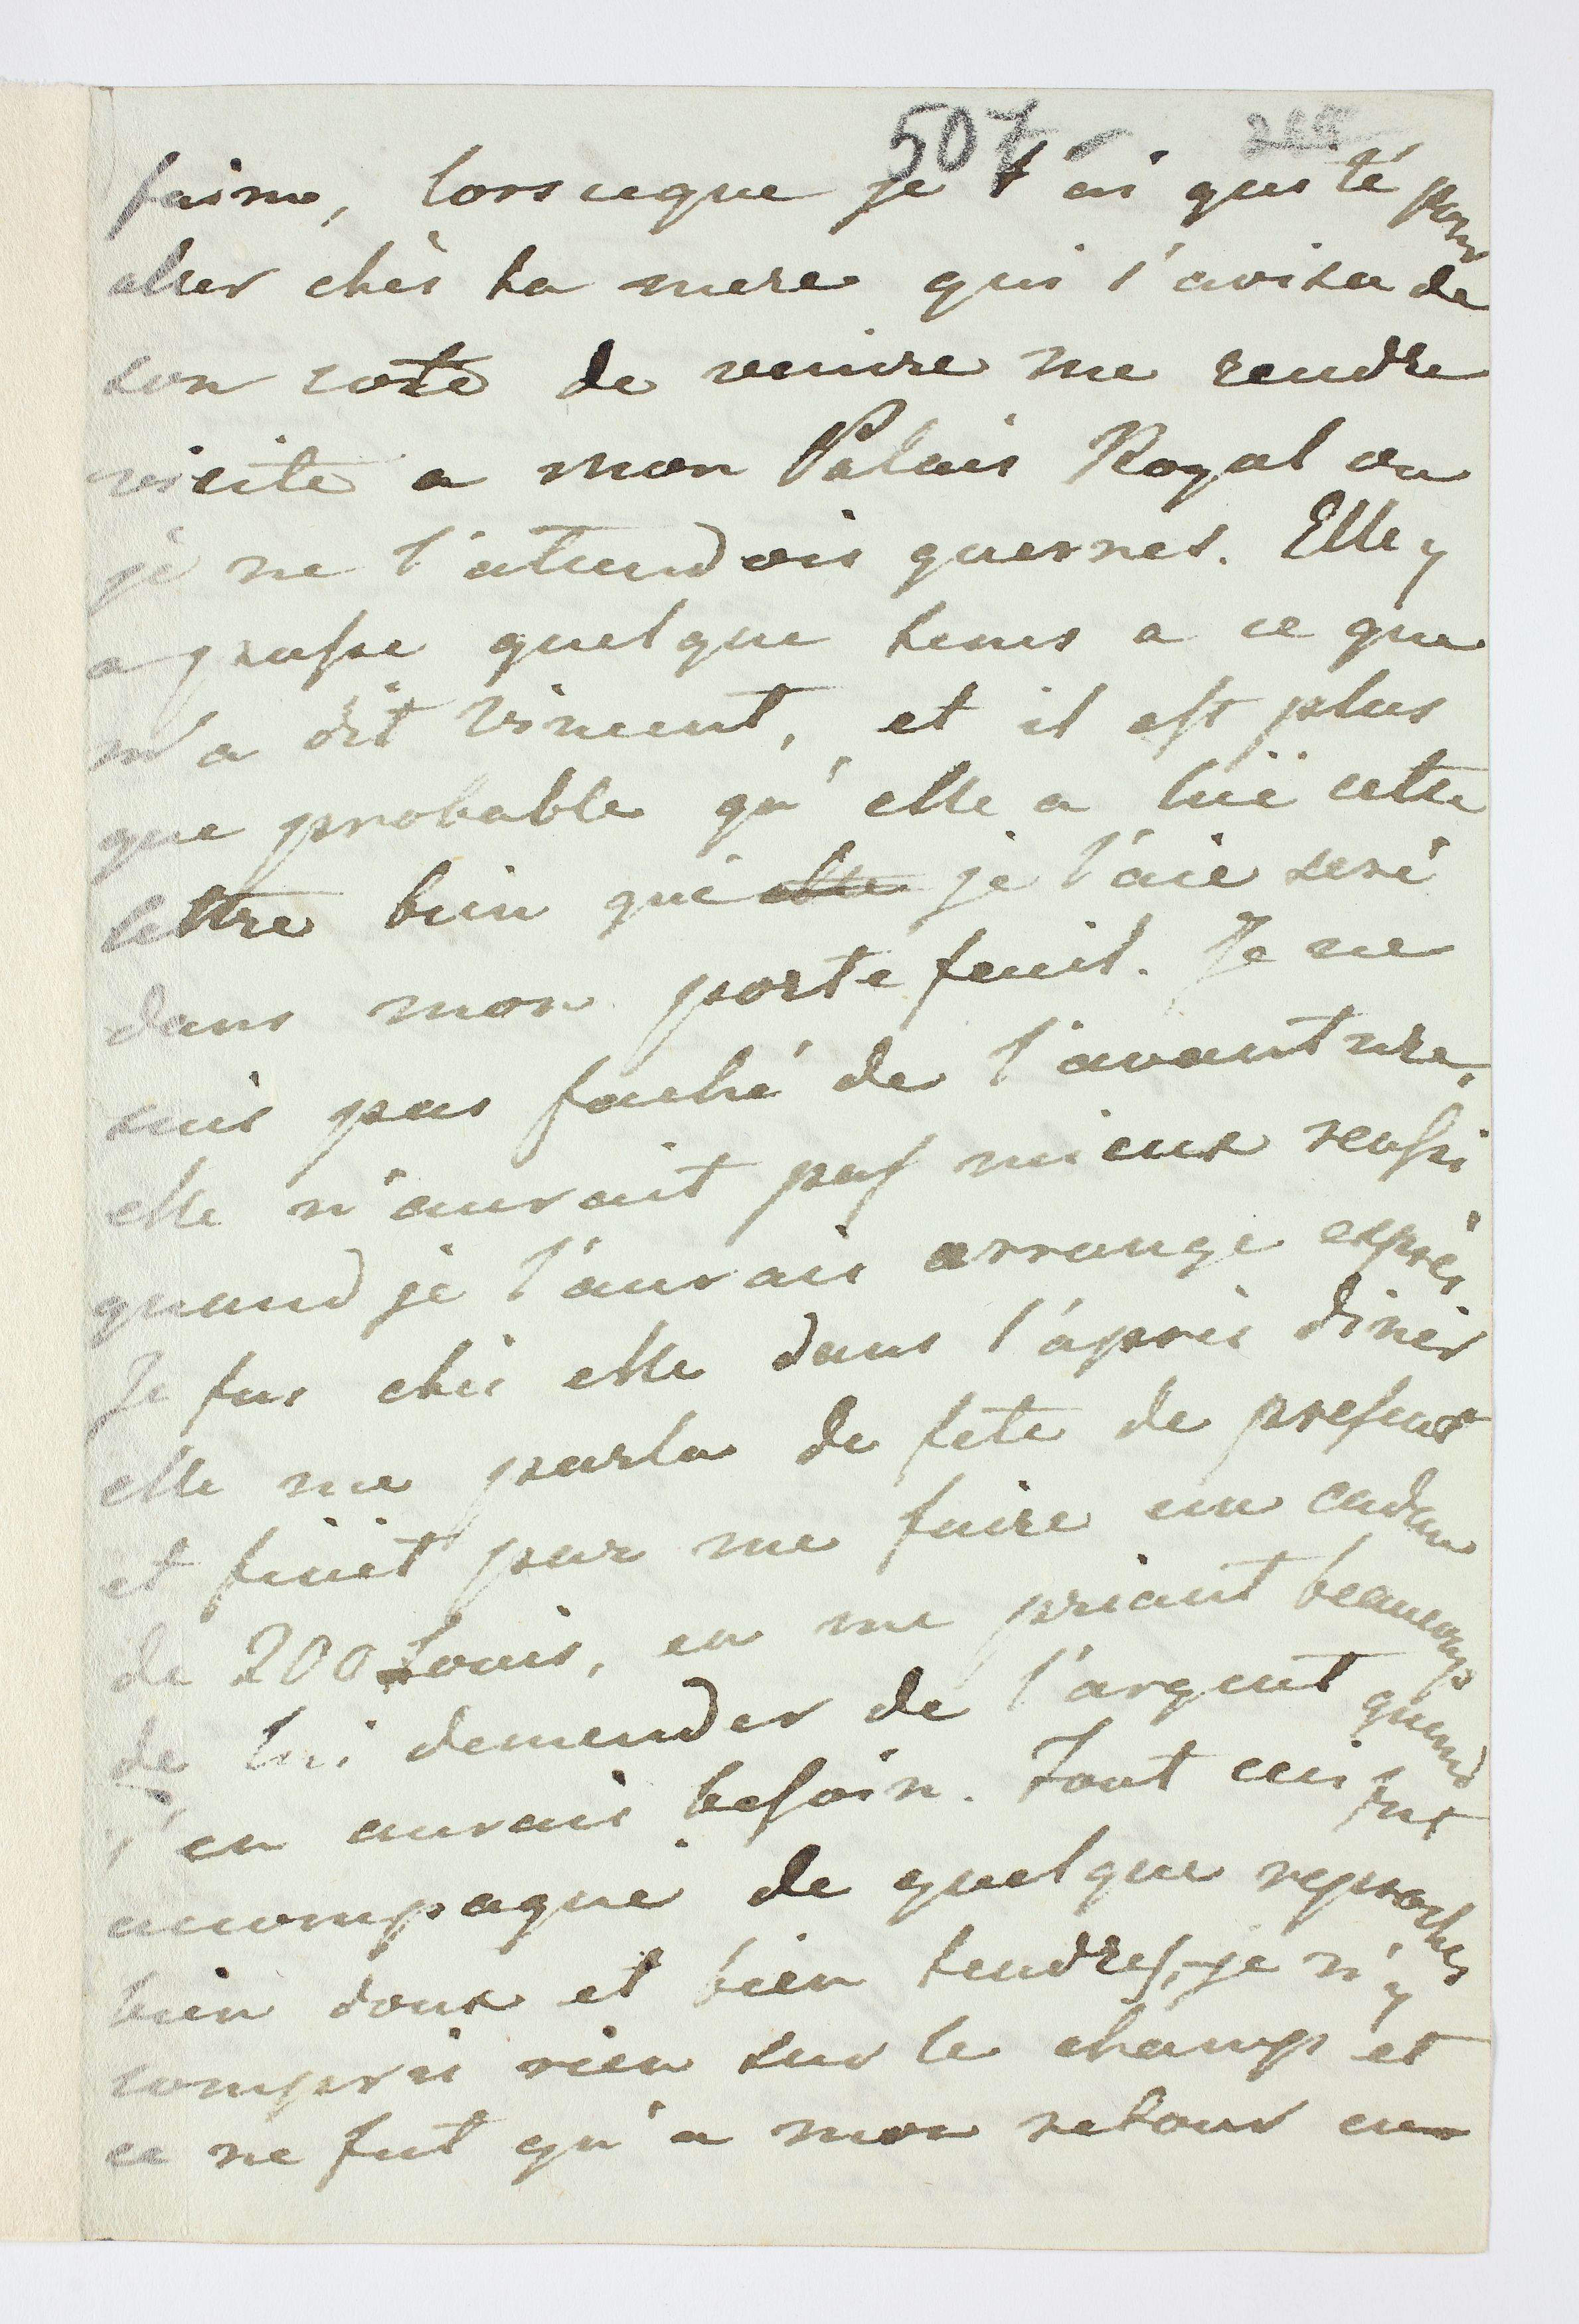 507
faime, lorsceque je t'ai quité pour
aller chés ta mere qui s'avisa de
son coté de venire me rendre
visite a mon Palais Royal ou
je ne l'atendois guernes. Elle y
a passe quelque tems a ce que
m'a dit Vincent, et il est plus
que probable qu'elle a luë cette
lettre bien que elle je l'aie seré
dans mon porte feuil. Je ne
suis pas faché de l'avanture,
elle n'aurait pas mieux reussi
quand je l'aurais arrange exprès
Je fus chés elle dans l'après diner
elle me parla de fete de present
et finit par me faire un cadau
de 200 Louis, en me priant beaucoup
de lui demender de l'argent quand
j'en aurais besoin. Tout ceci fut
accompagné de quelque reproches
bien doux et bien tendres, je n'y
compris rien sur le champ et
ce ne fut qu'a mon retour en